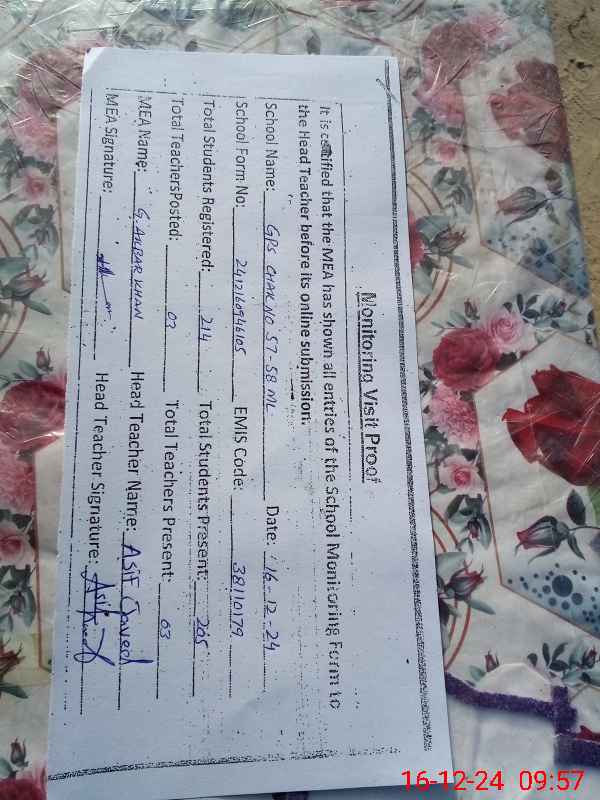 Monitoring Visit Proof
It is certified that the MEA has shown all entries of the School Monitoring Form to
the Head Teacher before its online submission.
School Name: GPS CHAK NO 57-58 ML Date: 16-12-24
School Form No: 2412160946105 EMIS Code: 38110179
Total Students Registered: 214 Total Students Present: 205
Total TeachersPosted: 03 Total Teachers Present: 03
MEA Name: G. AKBAR KHAN Head Teacher Name: ASIF Javeed
MEA Signature: Head Teacher Signature:
16-12-24 09:57